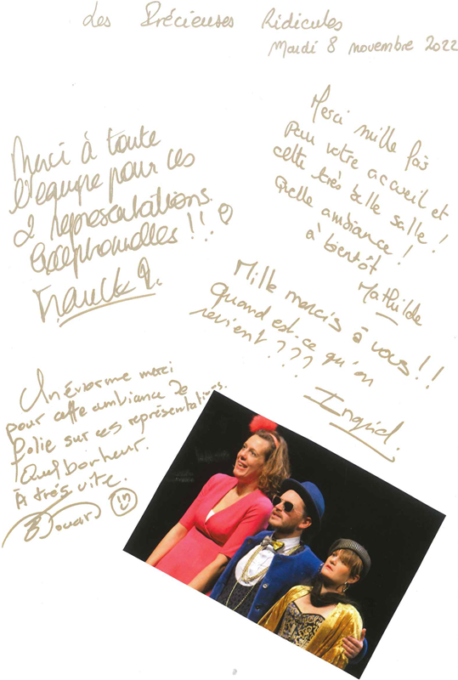 Les Précieuses Ridicules
Mardi 8 novembre 2022
Merci à toute
l'équipe pour ces
2 représentations
exceptionnelles !!!
Franck
Merci mille fois
pour votre accueil et
cette très belle salle !
Quelle ambiance !
à bientôt
Mathilde
Mille mercis à vous !!
quand est-ce qu'on
revient ???
Ingrid.
Un énorme merci
pour cette ambiance de
folie sur ces représentations.
Quel bonheur.
À très vite.